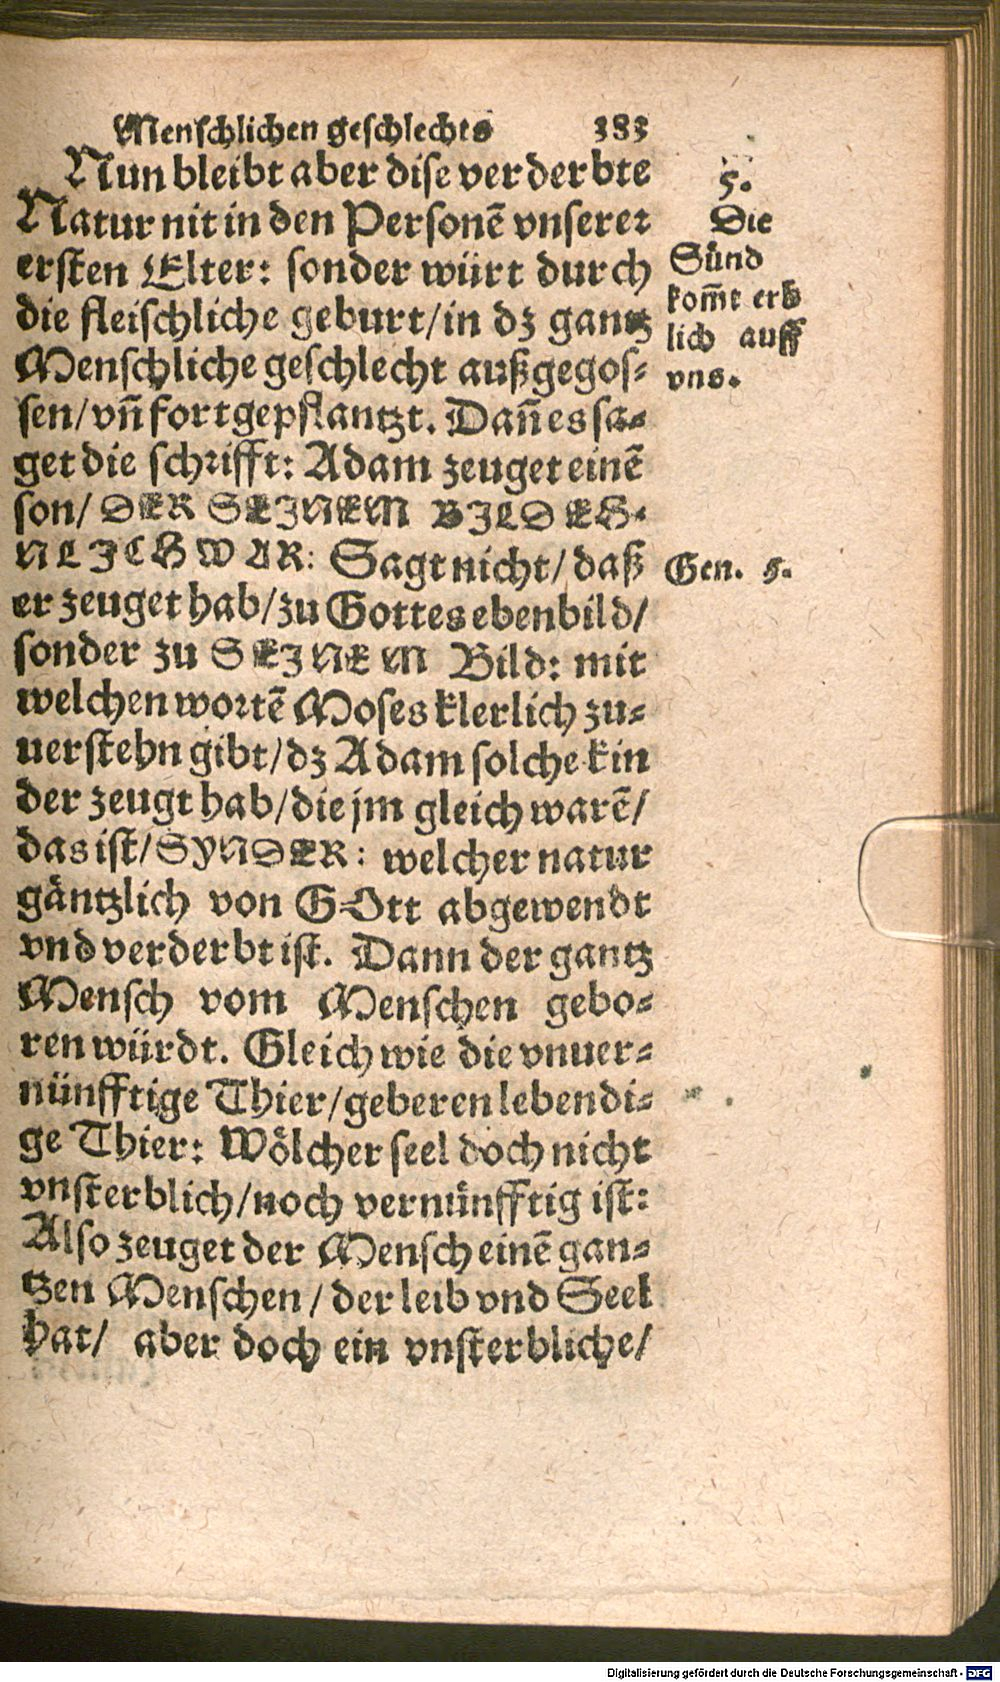 Menschlichen geschlechts 383
Nun bleibt aber dise verderbte
Natur nit in den Personē vnserer
ersten Elter: sonder würt durch
die fleischliche geburt/in dz gantz
Menschliche geschlecht außgegos-
sen/vñ fortgepflantzt. Dañ es sa-
get die schrifft: Adam zeuget einē
son/ DER SEINEM BILD EH-
NLICH WAR: Sagt nicht/daß
er zeuget hab/zu Gottes ebenbild/
sonder zu SEINEM Bild: mit
welchen wortē Moses klerlich zu-
uerstehn gibt/dz Adam solche kin
der zeugt hab/die jm gleich warē/
das ist/SYNDER: welcher natur
gäntzlich von GOtt abgewendt
vnd verderbt ist. Dann der gantz
Mensch vom Menschen gebo-
ren würdt. Gleich wie die vnuer-
nünfftige Thier/geberen lebendi-
ge Thier: Wölcher seel doch nicht
vnsterblich/noch vernünfftig ist:
Also zeuget der Mensch einē gan-
tzen Menschen/der leib vnd Seel
hat/ aber doch ein vnsterbliche/
5.
Die
Sünd
kom̄t erb
lich auff
vns.
Gen. 5.
Digitalisierung gefördert durch die Deutsche Forschungsgemeinschaft - DFG